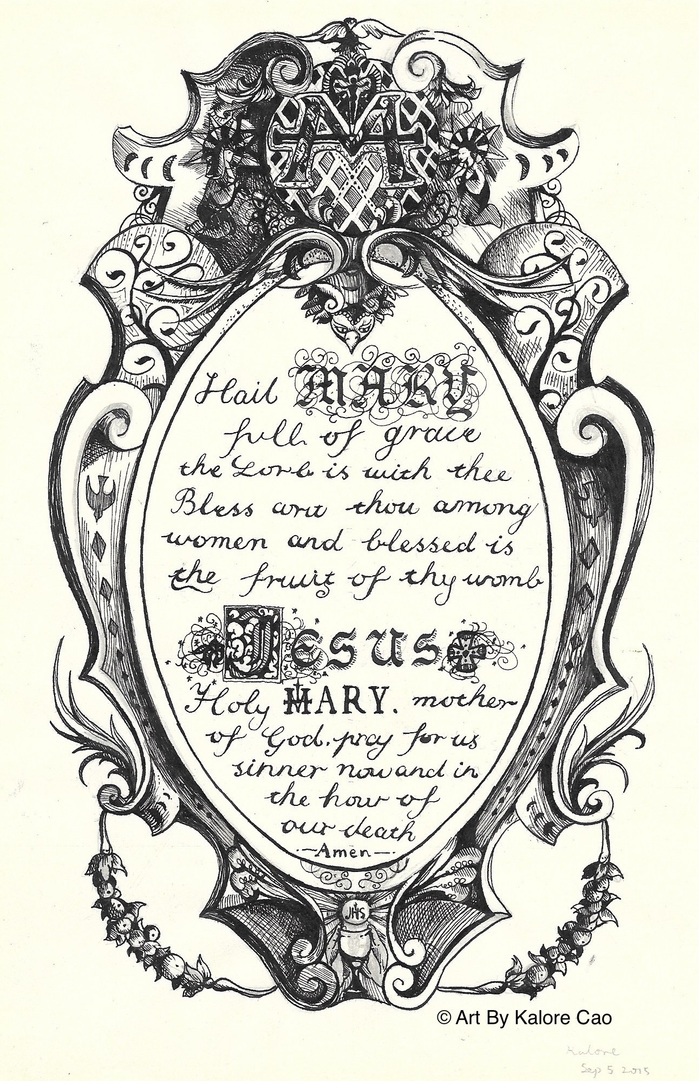 Hail MARY
full of grace
the Lord is with thee
Bless art thou among
women and blessed is
the fruit of thy womb
JESUS
Holy MARY. mother
of God. pray for us
sinner now and in
the hour of
our death
—Amen—
JHS
© Art By Kalore Cao
Kalore
Sep 5 2015